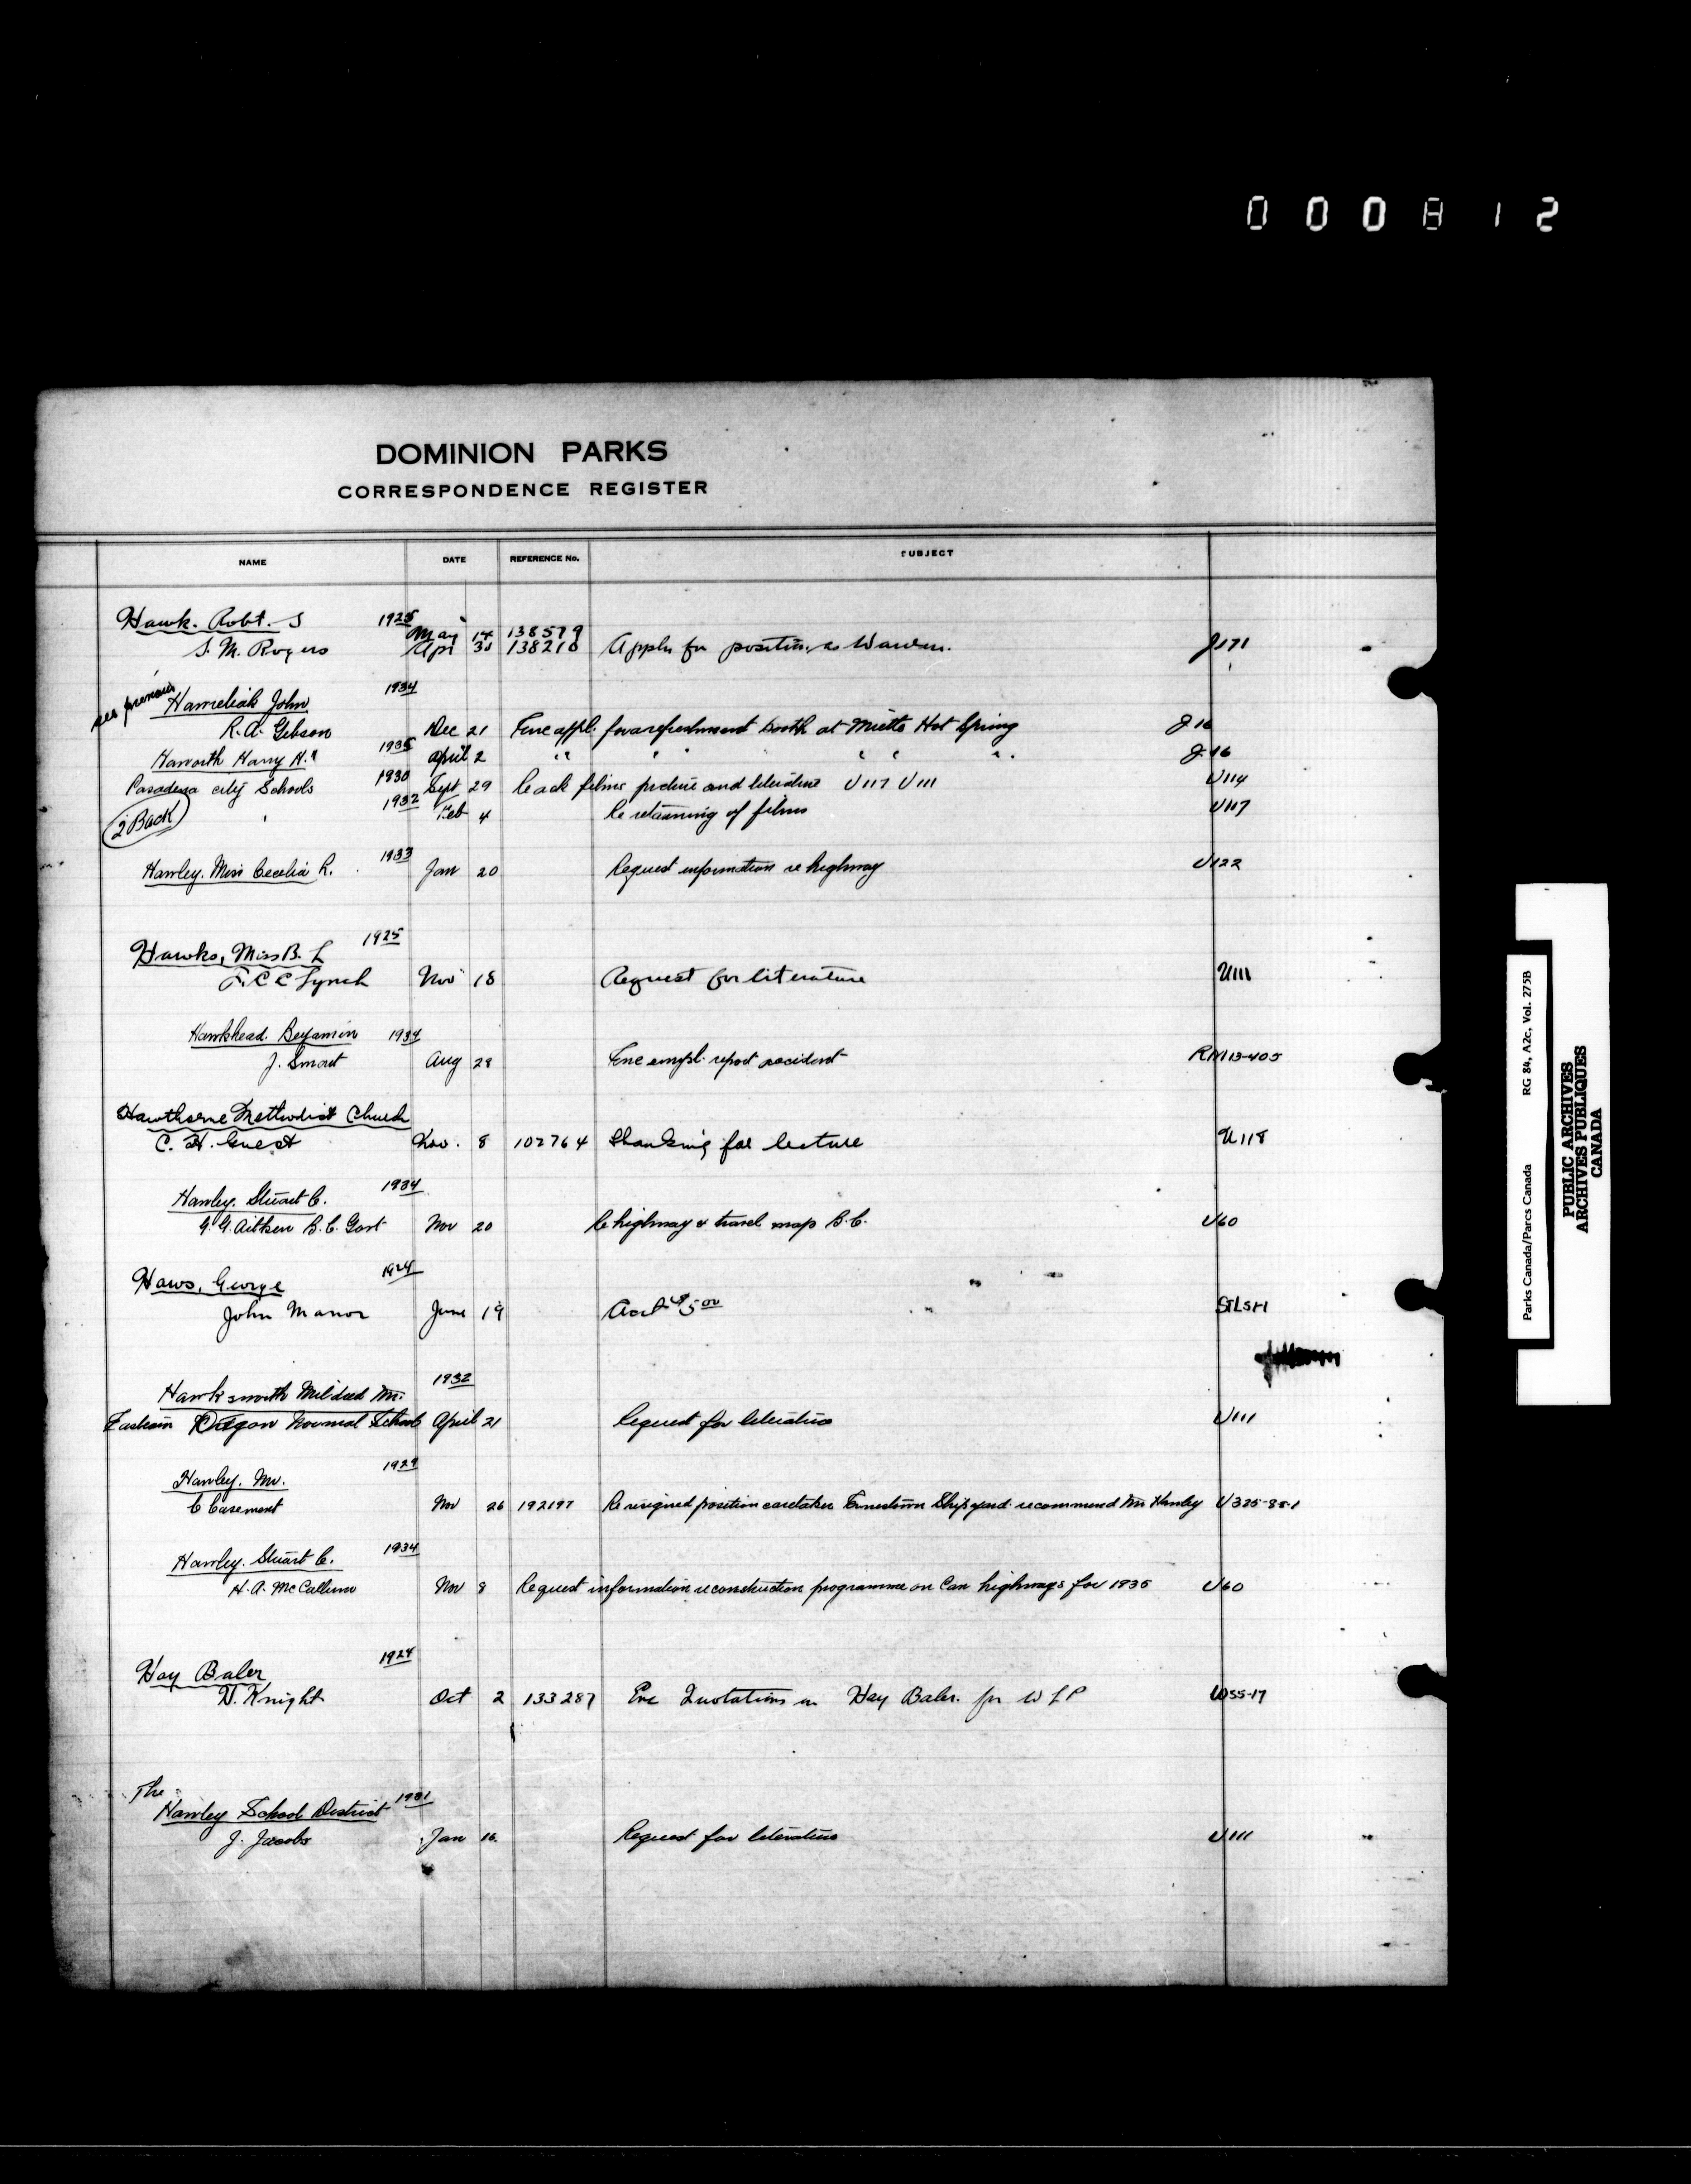 000812
DOMINION PARKS
CORRESPONDENCE REGISTER
NAME DATE REFERENCE No. SUBJECT
Hawk. Robt. S 1925 May 14 138579
S. M. Rogers Apr 30 138210 Appln for position as Warden. J171
see previous
Hawreliak John 1934
R. A. Gibson Dec 21 Enc appl. for a refreshment booth at Miette Hot Spring J16
Haworth Harry H. 1935 April 2 " " " " " " J16
Pasadena city Schools 1930 Sept 29 Re ack films picture and literature U117 U111 U114
2 Back " 1932 Feb 4 Re returning of films U117
Hawley. Miss Cecelia R. 1933 Jan 20 Request information re highway U122
Hawks, Miss B. L 1925
F. C C Lynch Nov 18 Request for literature U111
Hawkhead. Benjamin 1934
J. Smart Aug 28 Enc empl. report accident RM13-405
Hawthorne Methodist Church
C. H. Guest Nov. 8 102764 Thanking for lecture U118
Hawley. Stuart C. 1934
G. G. Aitken B. C. Govt Nov 20 Re highway & travel map B.C. U60
Haws, George 1924
John Manor June 19 Acct $5.00 STL5H
Hawksworth Mildred M. 1932
Eastern Oregon Normal School April 21 Request for literature U111
Hawley. Mr. 1929
C Casement Nov 26 192197 Re resigned position caretaker Ernestown Shipyard. recommend Mr Hawley U325-85-1
Hawley. Stuart C. 1934
H. A. McCallum Nov 8 Request information re construction programme on Can highways for 1935 U60
Hay Baler 1924
H. Knight Oct 2 133287 Enc Quotations on Hay Baler. for W L P W55-17
The
Hawley School District 1931
J. Jacobs Jan 16. Request for literature U111
Parks Canada/Parcs Canada RG 84, A2c, Vol. 275B
PUBLIC ARCHIVES
ARCHIVES PUBLIQUES
CANADA